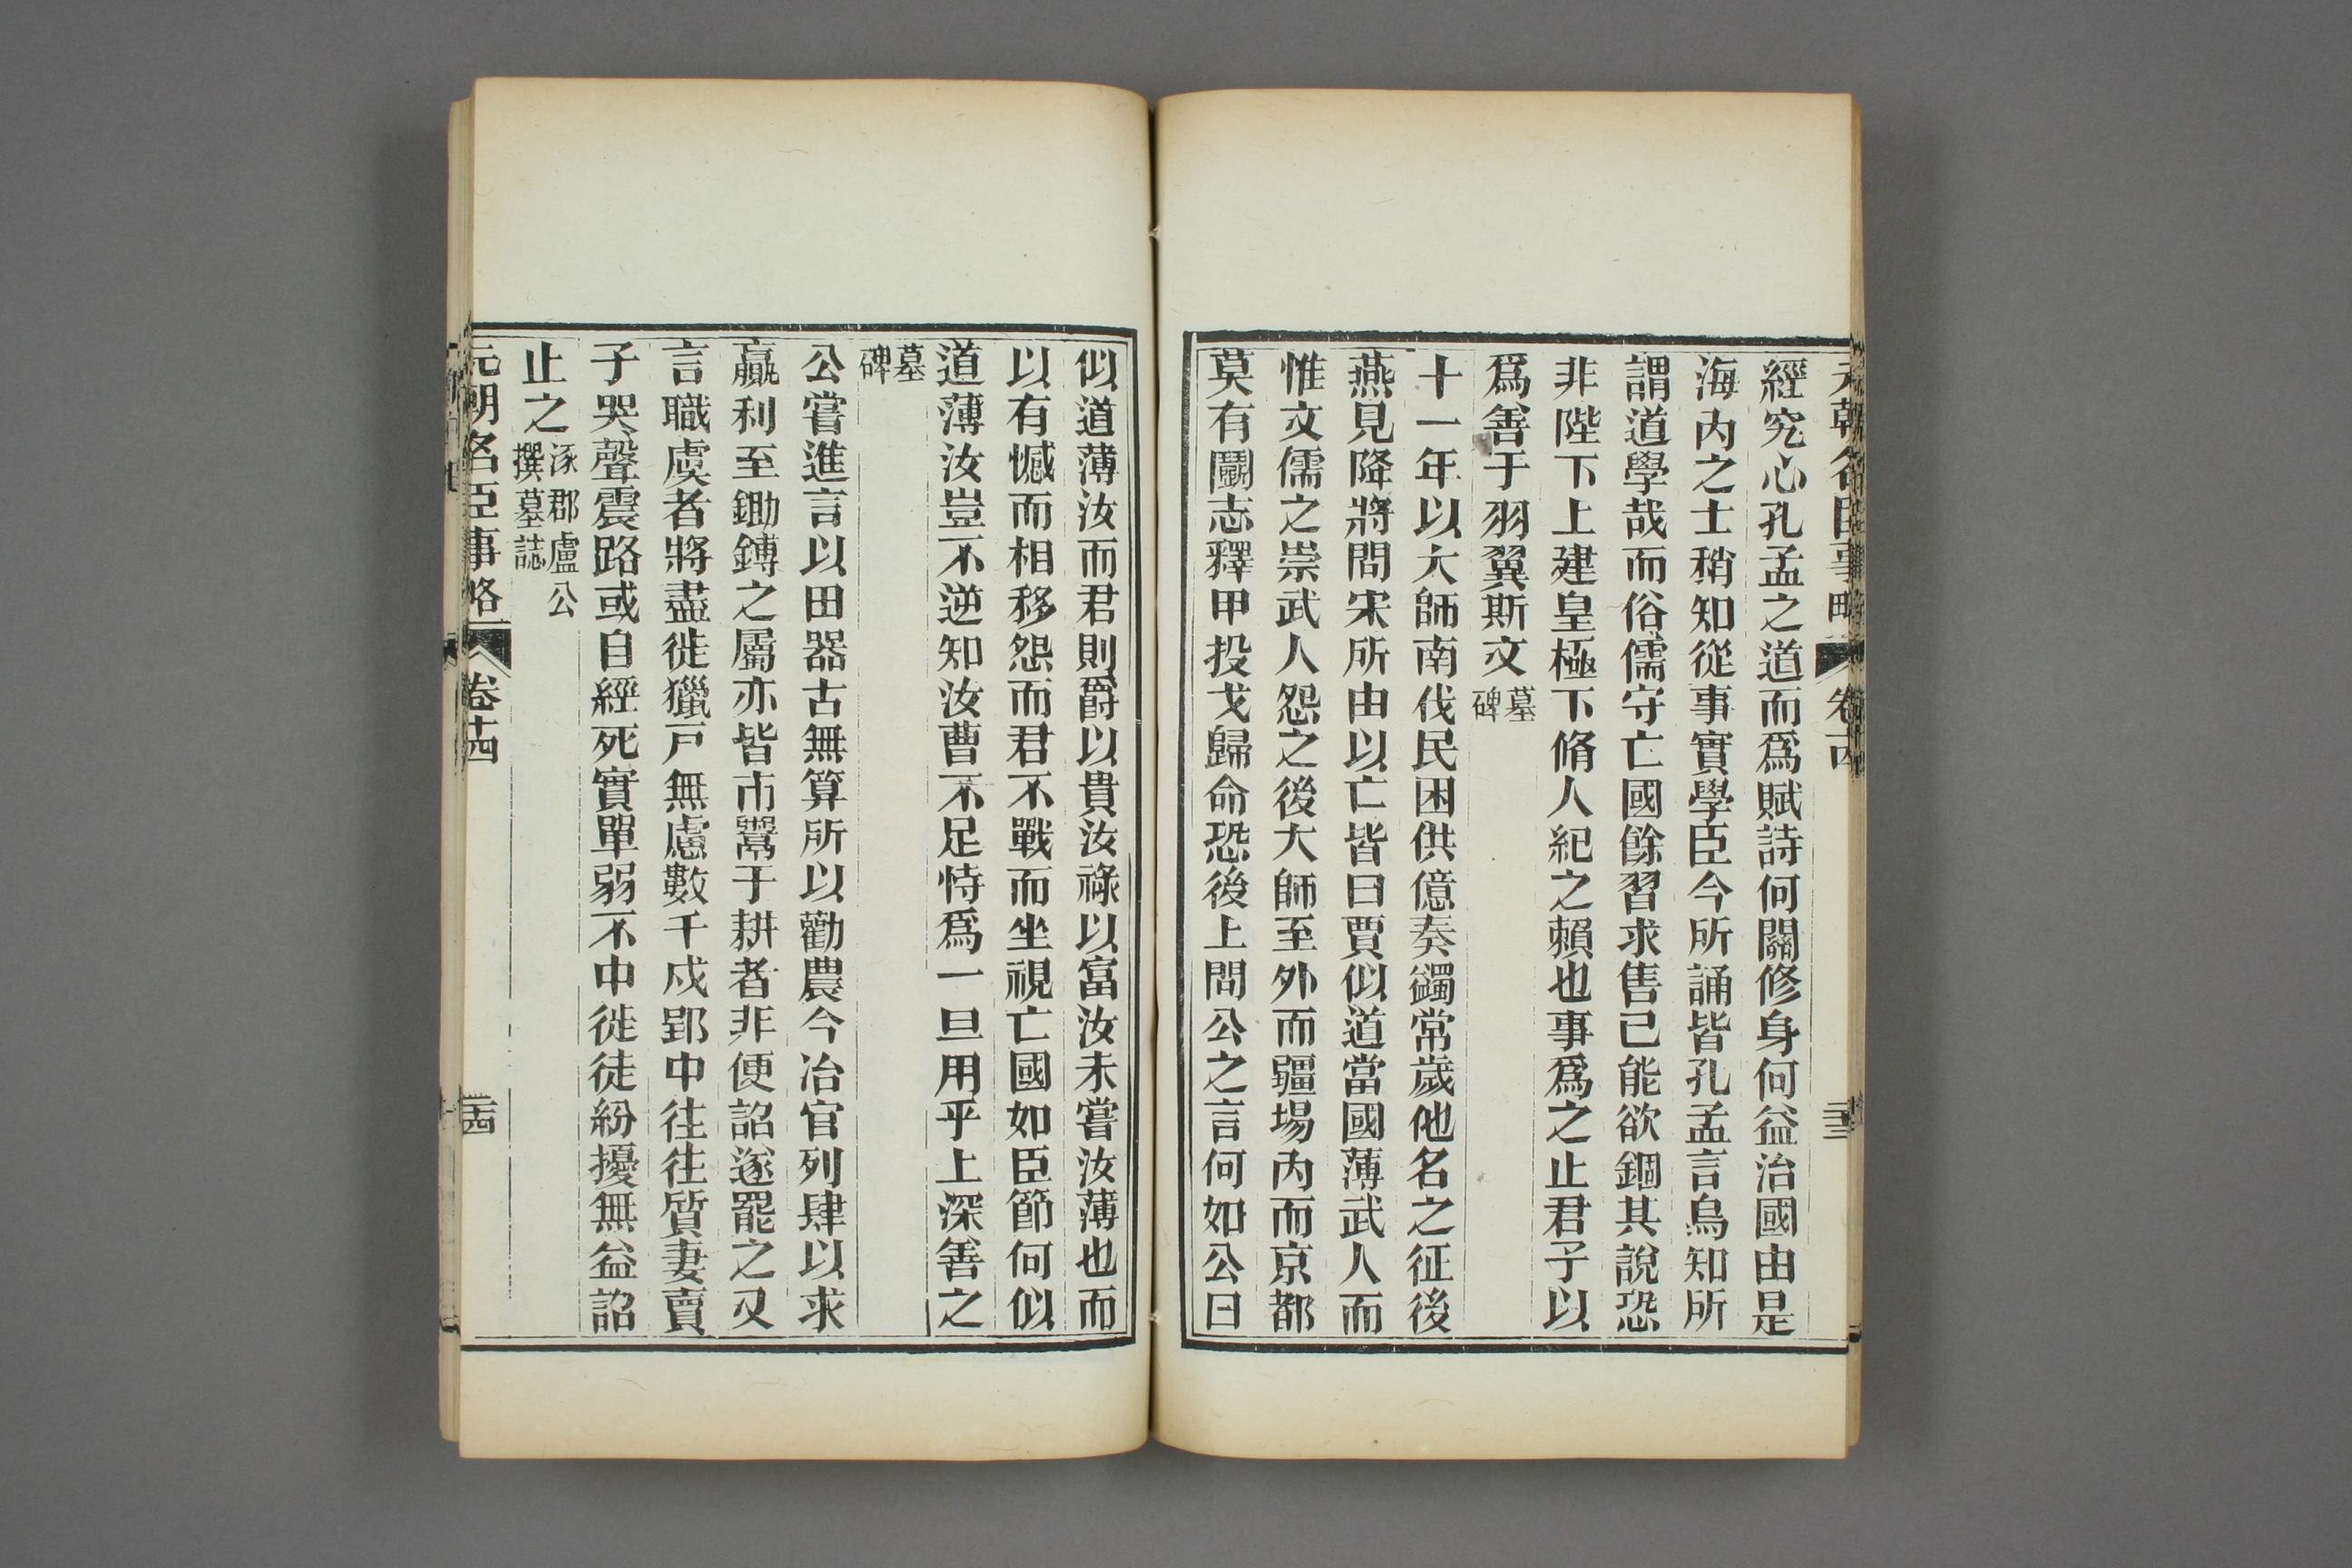 元朝名臣事略 卷十四 二十三
經究心孔孟之道而爲賦詩何關修身何益治國由是
海內之士稍知從事實學臣今所誦皆孔孟言烏知所
謂道學哉而俗儒守亡國餘習求售己能欲錮其說恐
非陛下上建皇極下脩人紀之賴也事爲之止君子以
爲善于羽翼斯文墓碑
十一年以大師南伐民困供億奏蠲常歲他名之征後
燕見降將問宋所由以亡皆曰賈似道當國薄武人而
惟文儒之崇武人怨之後大師至外而疆場內而京都
莫有鬭志釋甲投戈歸命恐後上問公之言何如公曰
似道薄汝而君則爵以貴汝祿以富汝未嘗汝薄也而
以有憾而相移怨而君不戰而坐視亡國如臣節何似
道薄汝豈不逆知汝曹不足恃爲一旦用乎上深善之
墓碑
公嘗進言以田器古無算所以勸農今冶官列肆以求
贏利至鋤鎛之屬亦皆市鬻于耕者非便詔遂罷之又
言職虞者將盡徙獵戶無慮數千戍郢中往往質妻賣
子哭聲震路或自經死實單弱不中徙徒紛擾無益詔
止之涿郡盧公撰墓誌
元朝名臣事略 卷十四 二十四